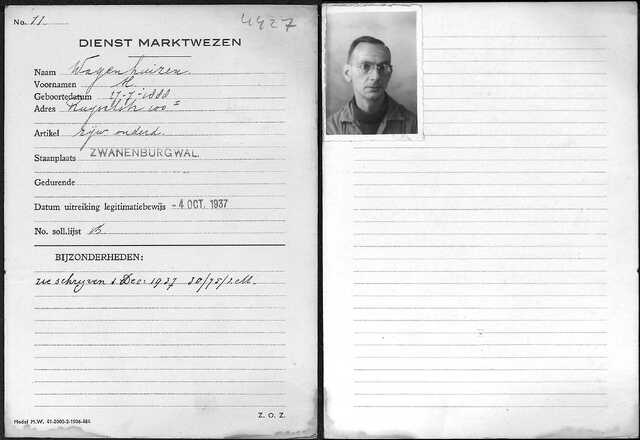 No. 11.
4427
DIENST MARKTWEZEN
Naam Wagenhuizen.
Voornamen M.
Geboortedatum 17-7-1888
Adres 100
Artikel rijw. onderd.
Staanplaats ZWANENBURGWAL.
Gedurende
Datum uitreiking legitimatiebewijs -4 OCT. 1937
No. soll.lijst
BIJZONDERHEDEN:
zie schrijven 1 Dec: 1937 30/75/1.M.
Model M.W. 01-2000-3-1936-881
Z. O. Z.